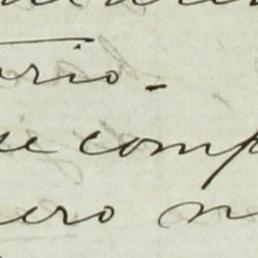 ario.
ue comp
ero n